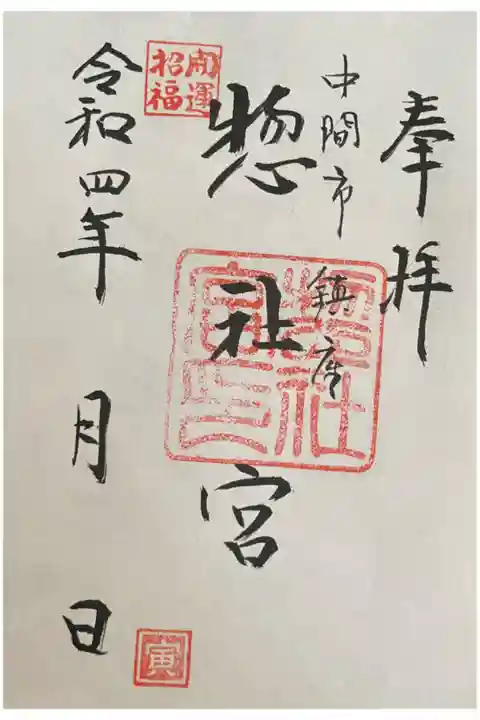 奉拝
中間市 鎮座
惣社宮
惣社宮印
開運招福
令和四年 月 日
寅